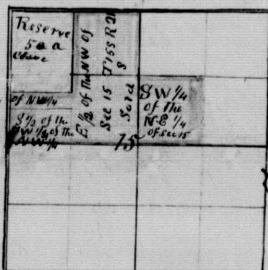 Reserve
5 a a
above
of NW 1/4
S 1/2 of the
SW 1/4 of the
NW 1/4
E 1/2 of the NW of
Sec 15 T 165 R 21
S
Sold
SW 1/4
of the
NE 1/4
of sec 15
15